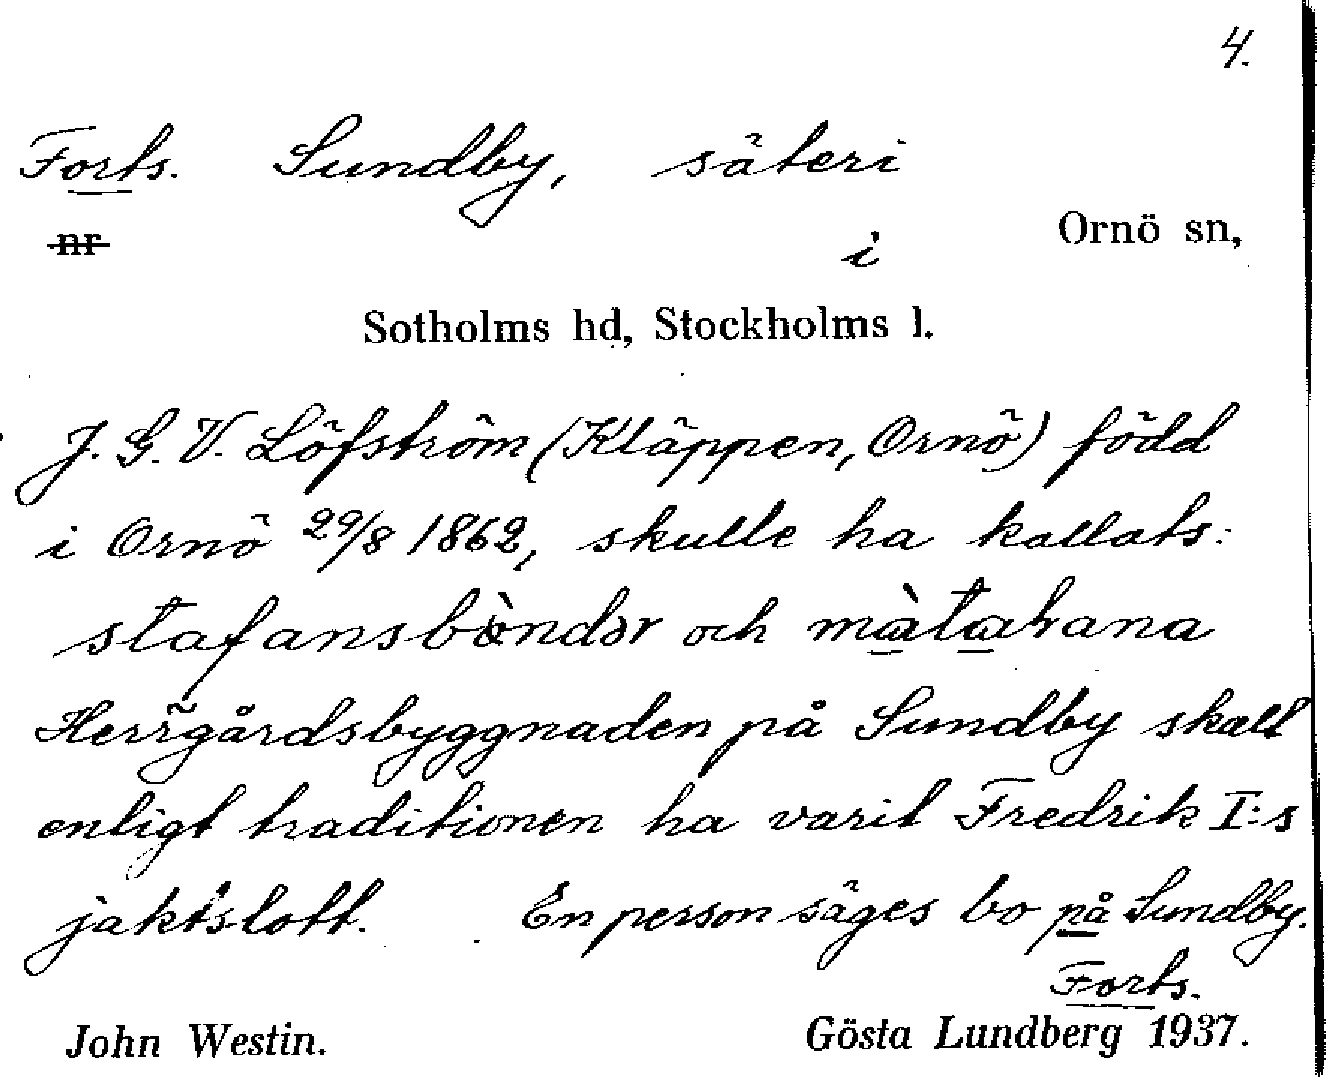 4.
Forts. Sundby, säteri
nr i Ornö sn,
Sotholms hd, Stockholms l.
J. G. V. Löfström (Kläppen, Ornö) född
i Ornö 29/8 1862, skulle ha kallats:
stafansbòndər och màtarana
Herrgårdsbyggnaden på Sundby skall
enligt traditionen ha varit Fredrik I:s
jaktslott. En person säges bo på Sundby.
Forts.
John Westin. Gösta Lundberg 1937.